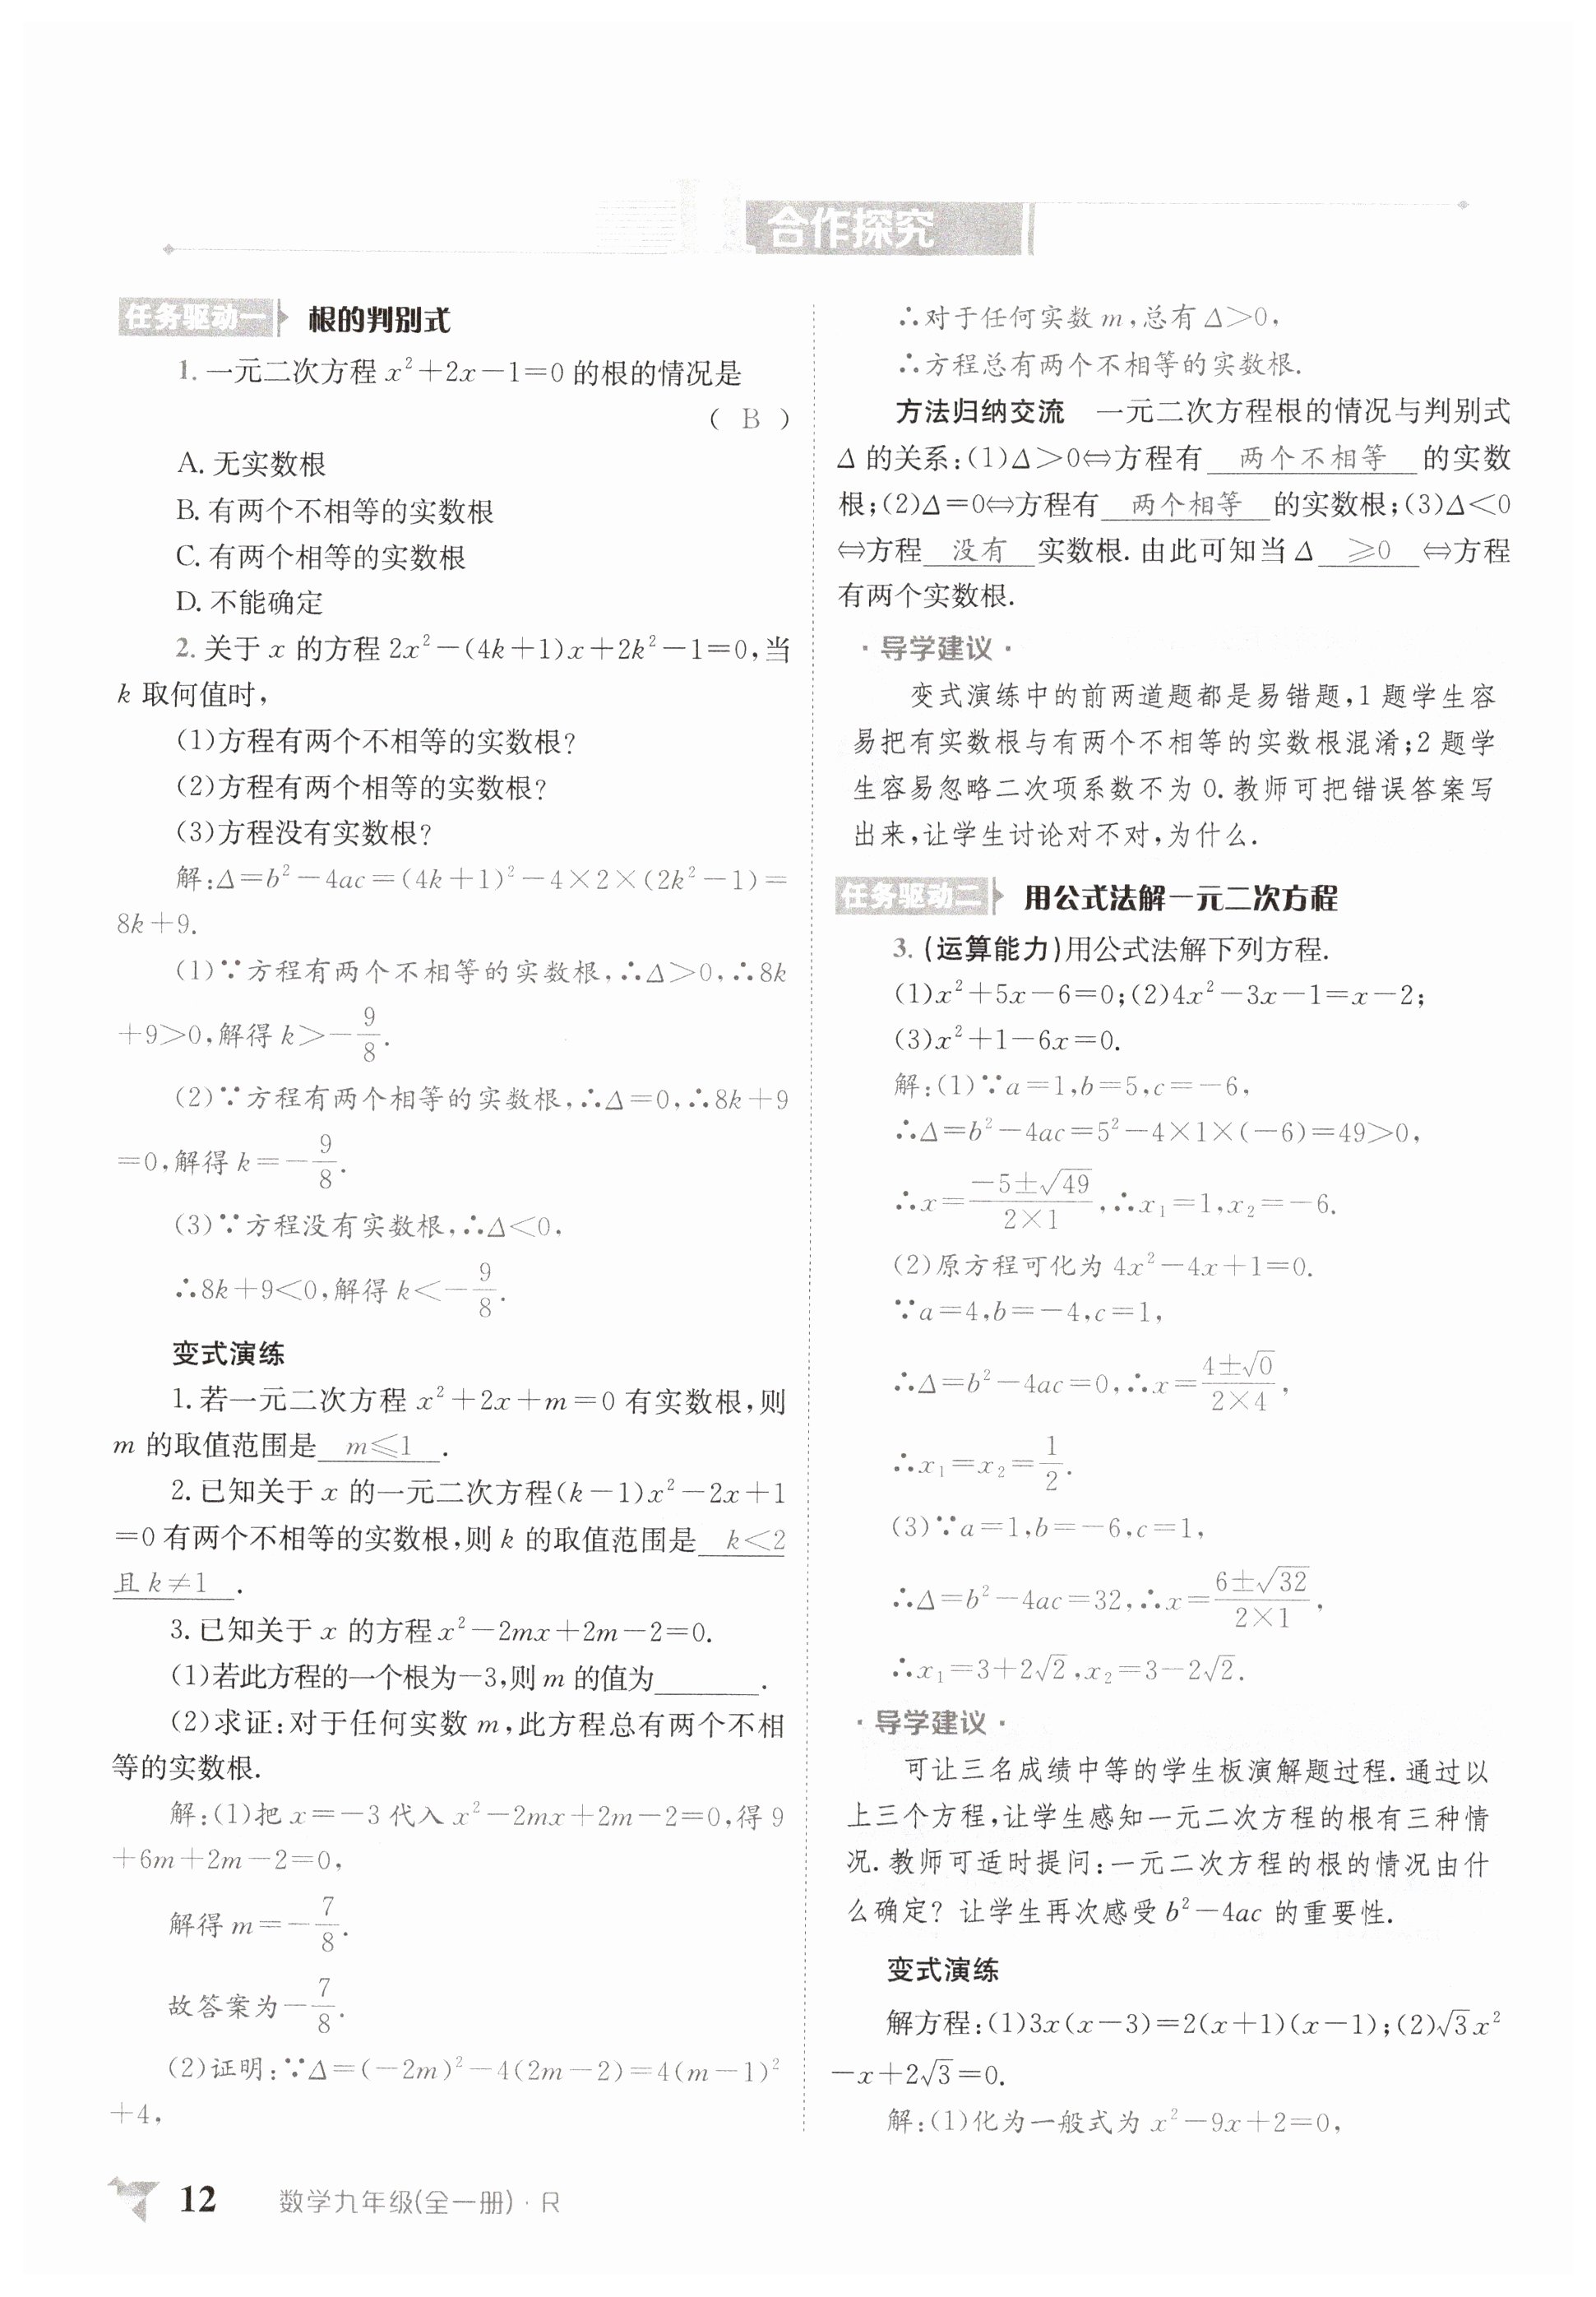 合作探究
任务驱动一 根的判别式
1. 一元二次方程 x²+2x-1=0 的根的情况是
( B )
A. 无实数根
B. 有两个不相等的实数根
C. 有两个相等的实数根
D. 不能确定
2. 关于 x 的方程 2x²-(4k+1)x+2k²-1=0,当
k 取何值时,
(1)方程有两个不相等的实数根?
(2)方程有两个相等的实数根?
(3)方程没有实数根?
解:Δ=b²-4ac=(4k+1)²-4×2×(2k²-1)=
8k+9.
(1)∵方程有两个不相等的实数根,∴Δ>0,∴8k
+9>0,解得 k>-9/8.
(2)∵方程有两个相等的实数根,∴Δ=0,∴8k+9
=0,解得 k=-9/8.
(3)∵方程没有实数根,∴Δ<0,
∴8k+9<0,解得 k<-9/8.
变式演练
1. 若一元二次方程 x²+2x+m=0 有实数根,则
m 的取值范围是 m≤1 .
2. 已知关于 x 的一元二次方程(k-1)x²-2x+1
=0 有两个不相等的实数根,则 k 的取值范围是 k<2
且 k≠1 .
3. 已知关于 x 的方程 x²-2mx+2m-2=0.
(1)若此方程的一个根为-3,则 m 的值为______.
(2)求证:对于任何实数 m,此方程总有两个不相
等的实数根.
解:(1)把 x=-3 代入 x²-2mx+2m-2=0,得 9
+6m+2m-2=0,
解得 m=-7/8.
故答案为-7/8.
(2)证明:∵Δ=(-2m)²-4(2m-2)=4(m-1)²
+4,
∴对于任何实数 m,总有 Δ>0,
∴方程总有两个不相等的实数根.
方法归纳交流 一元二次方程根的情况与判别式
Δ 的关系:(1)Δ>0⇔方程有 两个不相等 的实数
根;(2)Δ=0⇔方程有 两个相等 的实数根;(3)Δ<0
⇔方程 没有 实数根. 由此可知当 Δ ≥0 ⇔方程
有两个实数根.
·导学建议·
变式演练中的前两道题都是易错题,1 题学生容
易把有实数根与有两个不相等的实数根混淆;2 题学
生容易忽略二次项系数不为 0. 教师可把错误答案写
出来,让学生讨论对不对,为什么.
任务驱动二 用公式法解一元二次方程
3. (运算能力)用公式法解下列方程.
(1)x²+5x-6=0;(2)4x²-3x-1=x-2;
(3)x²+1-6x=0.
解:(1)∵a=1,b=5,c=-6,
∴Δ=b²-4ac=5²-4×1×(-6)=49>0,
∴x=(-5±√49)/(2×1),∴x₁=1,x₂=-6.
(2)原方程可化为 4x²-4x+1=0.
∵a=4,b=-4,c=1,
∴Δ=b²-4ac=0,∴x=(4±√0)/(2×4),
∴x₁=x₂=1/2.
(3)∵a=1,b=-6,c=1,
∴Δ=b²-4ac=32,∴x=(6±√32)/(2×1),
∴x₁=3+2√2,x₂=3-2√2.
·导学建议·
可让三名成绩中等的学生板演解题过程. 通过以
上三个方程,让学生感知一元二次方程的根有三种情
况. 教师可适时提问:一元二次方程的根的情况由什
么确定? 让学生再次感受 b²-4ac 的重要性.
变式演练
解方程:(1)3x(x-3)=2(x+1)(x-1);(2)√3x²
-x+2√3=0.
解:(1)化为一般式为 x²-9x+2=0,
12 数学九年级(全一册)·R